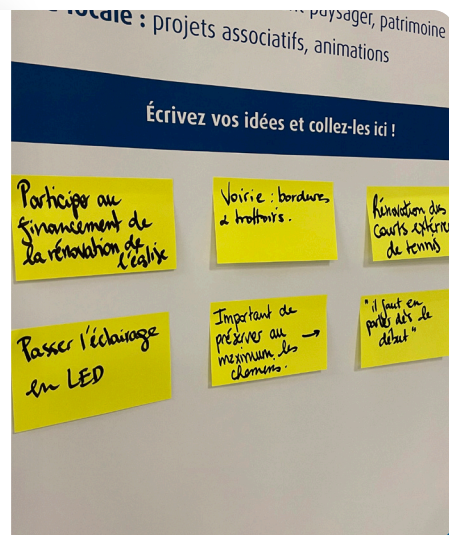 paysager, patrimoine
locale : projets associatifs, animations
Écrivez vos idées et collez-les ici !
Participer au
financement de
la rénovation de
l'église
Voirie : bordures
& trottoirs.
Rénovation des
courts
de tennis
Passer l'éclairage
en LED
Important de
préserver au
maximum les →
chemins.
"il faut en
parler dès le
début"